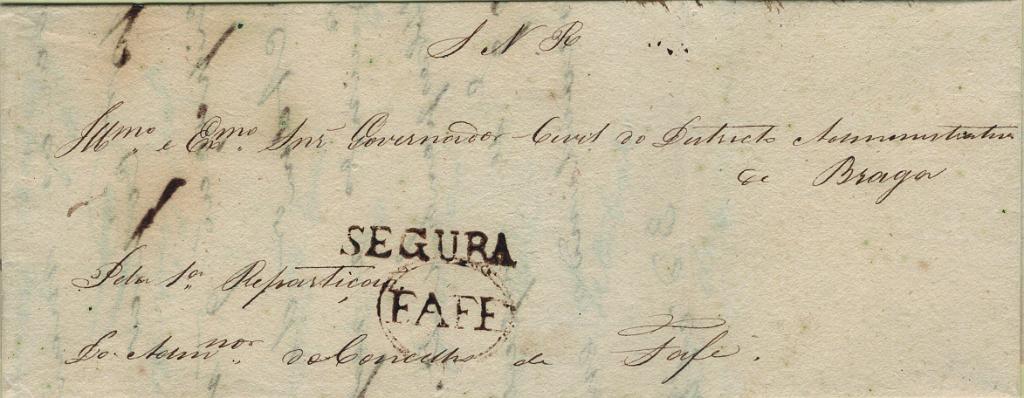 S N R
Illmo. e Exmo. Snr. Governador Civil do Districto Administrativo
de Braga
SEGURA
Pela 1a. Repartição
FAFE
Do Admnor. do Concelho de Fafe.